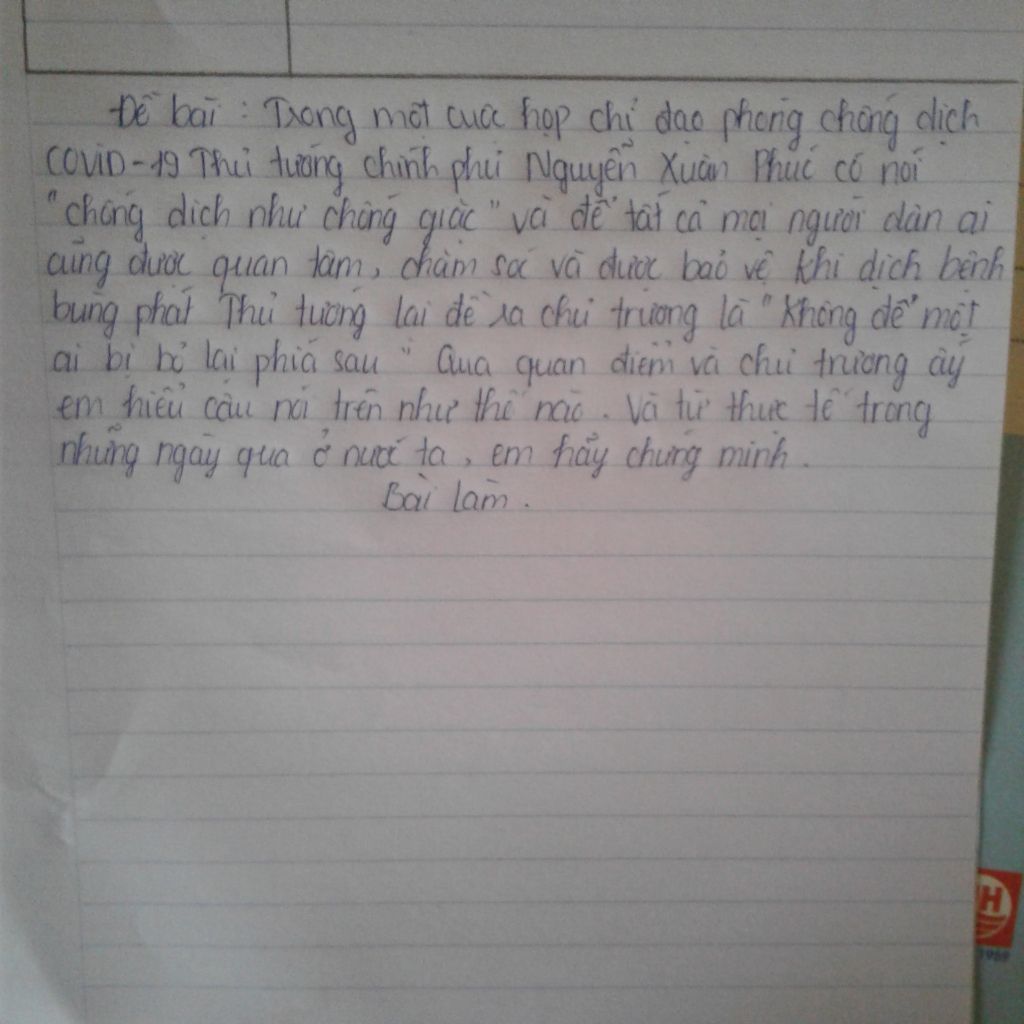 Đề bài : Trong một cuộc họp chỉ đạo phòng chống dịch
COVID-19 Thủ tướng chính phủ Nguyễn Xuân Phúc có nói
"chống dịch như chống giặc" và để tất cả mọi người dân ai
cũng được quan tâm, chăm sóc và được bảo vệ khi dịch bệnh
bùng phát Thủ tướng lại đề ra chủ trương là "không để một
ai bị bỏ lại phía sau" Qua quan điểm và chủ trương ấy
em hiểu câu nói trên như thế nào. Và từ thực tế trong
những ngày qua ở nước ta, em hãy chứng minh.
Bài làm.
H
1989